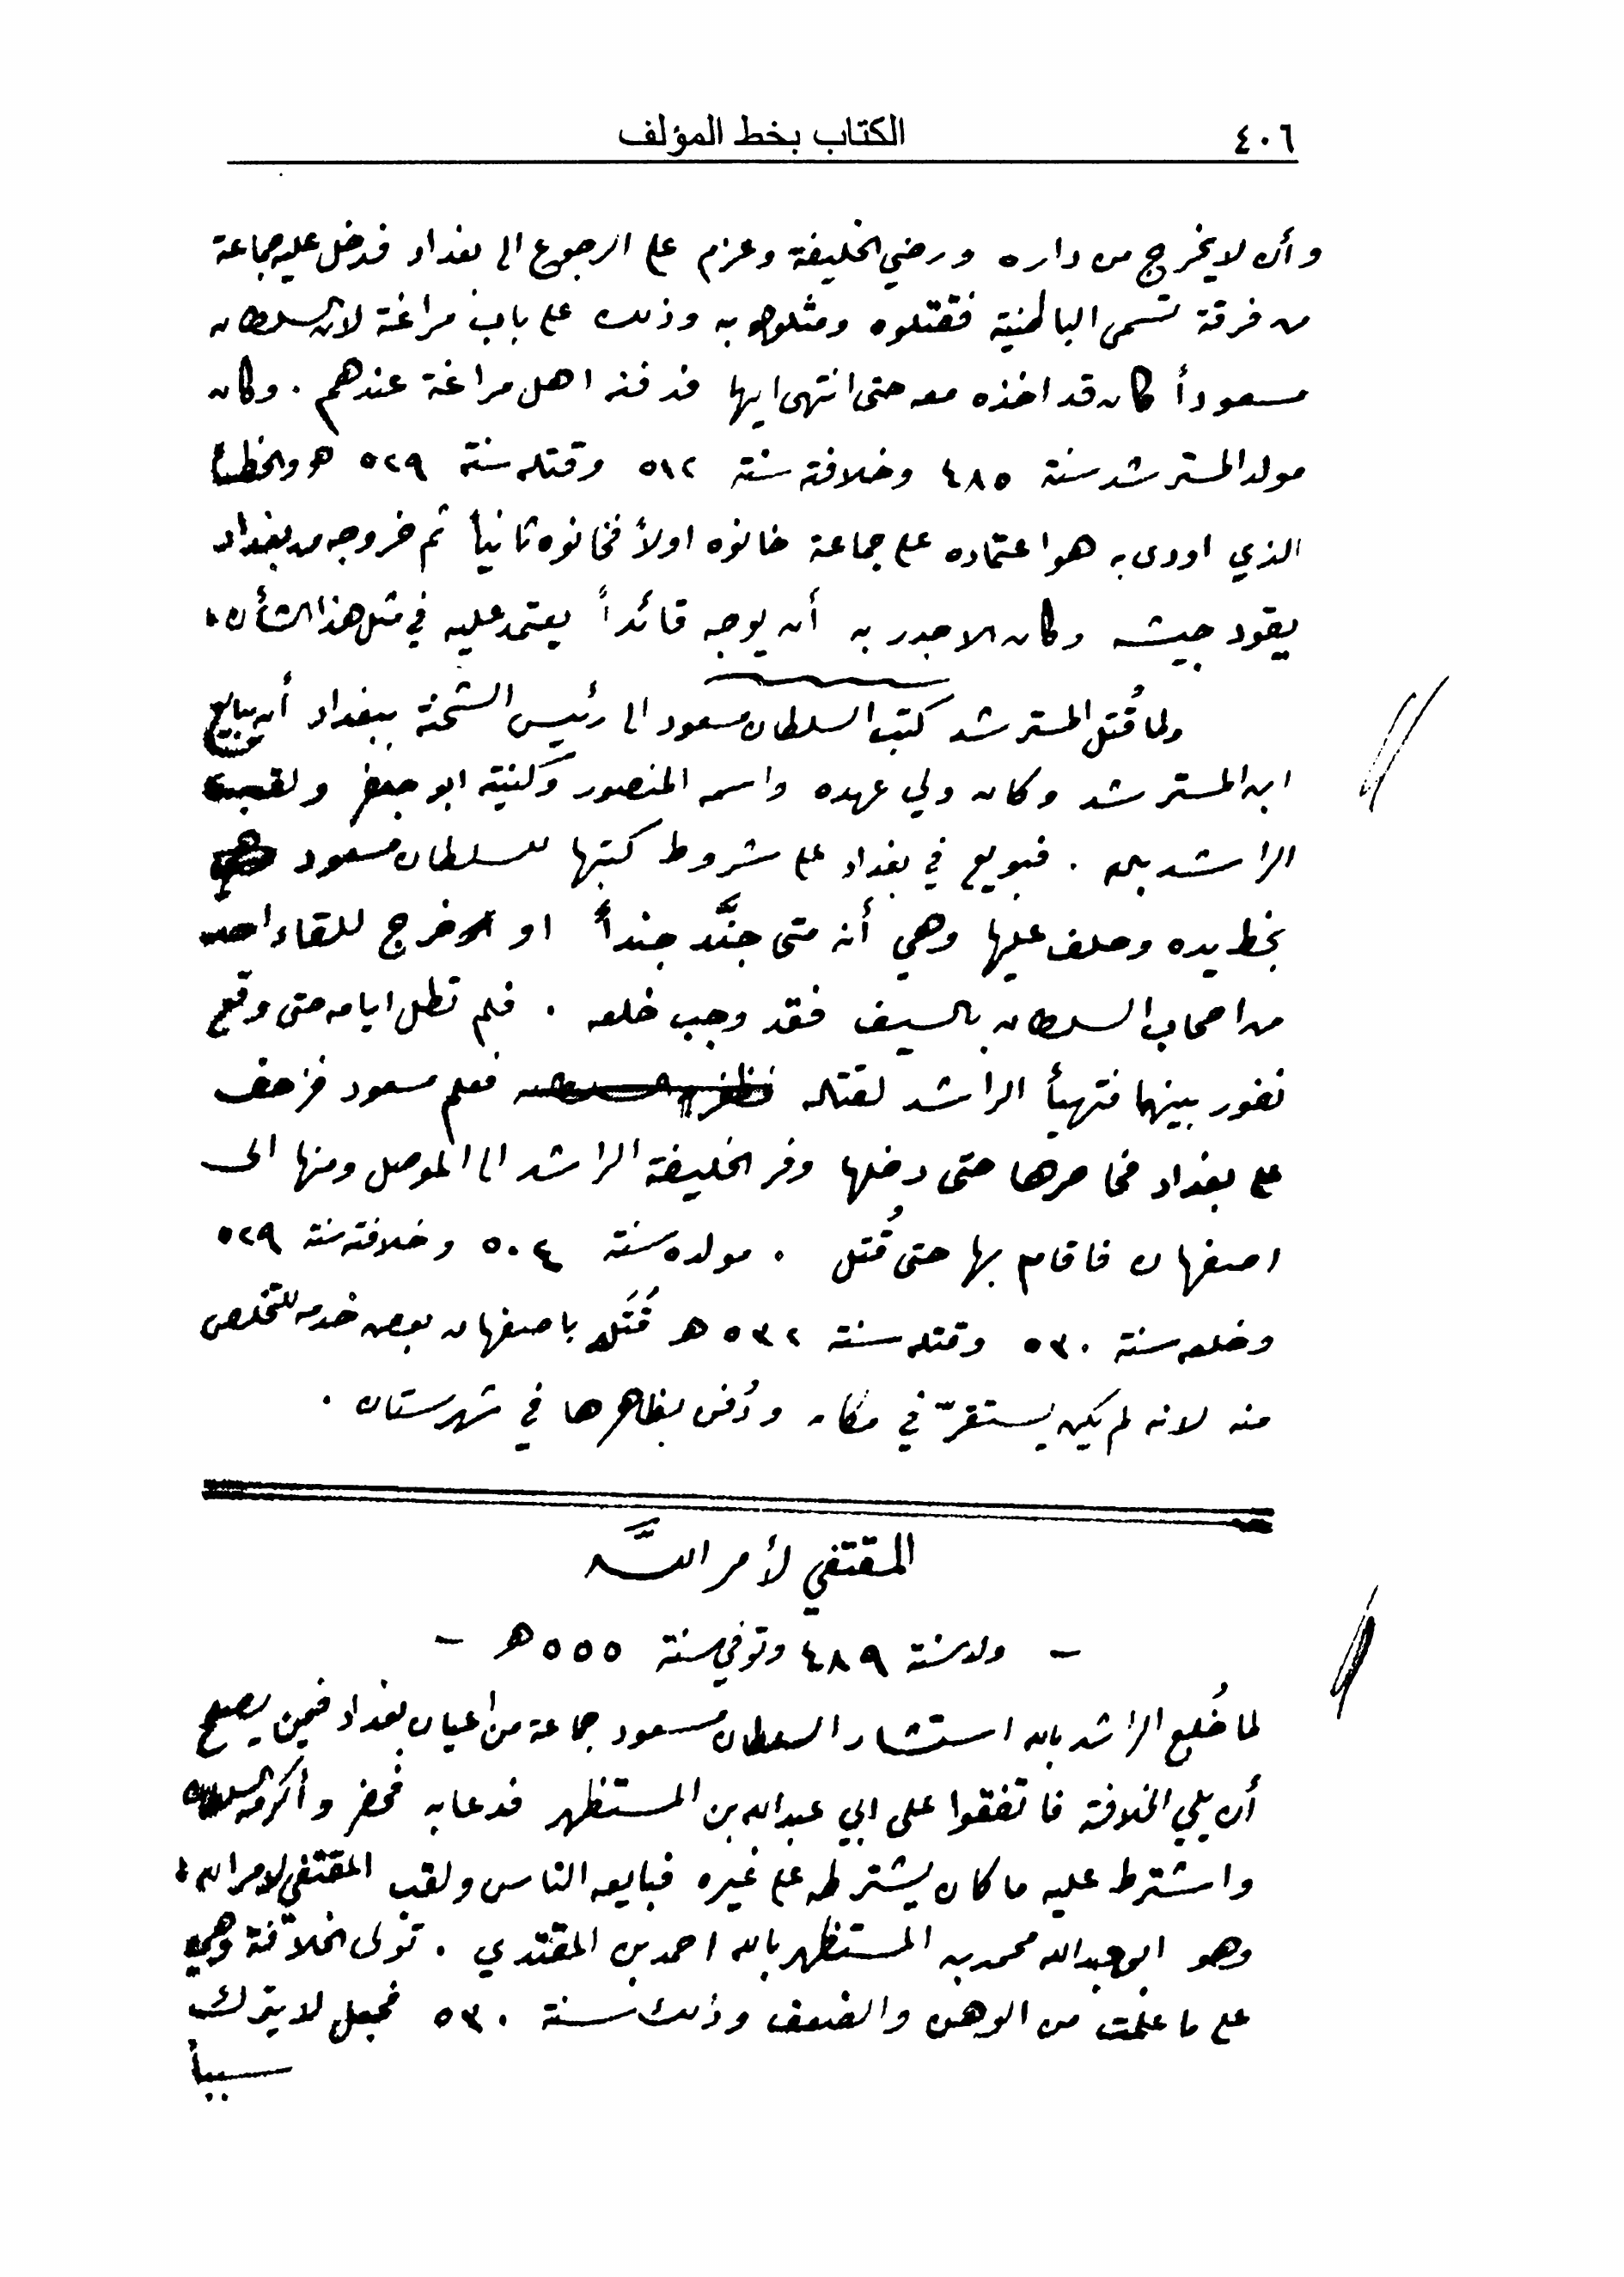 ٤٠٦ الكتاب بخط المؤلف
وأن لا يخرج من داره ورضي الخليفة وعزم على الرجوع الى بغداد فدخل عليه جماعة
من فرقة تسمى الباطنية فقتلوه ومثلوا به وذلك على باب مراغة لان السلطان
مسعوداً كان قد اخذه معه حتى انتهى اليها فدفنه اهل مراغة عندهم . وكان
مولد المسترشد سنة ٤٨٥ وخلافته سنة ٥١٢ وقتله سنة ٥٢٩ هـ والخطأ
الذي اودى به هو اعتماده على جماعة خانوه اولاً فخانوه ثانياً ثم خروجه من بغداد
يقود جيشه وكان الاجدر به أن يوجه قائداً يعتمد عليه في مثل هذا الشأن .
ولما قُتل المسترشد كتب السلطان مسعود الى رئيس الشحنة ببغداد أن يبايع
ابن المسترشد وكان ولي عهده واسمه المنصور وكنيته ابو جعفر ولقبه
الراشد بالله . فبويع في بغداد على شروط كتبها للسلطان مسعود
بخط يده وحلف عليها وهي أنه متى جنَّد جنداً او خرج للقاء احد
من اصحاب السلطان بالسيف فقد وجب خلعه . فلم تطل ايامه حتى وقع
نفور بينهما فتهيأ الراشد لقتاله فعلم مسعود فزحف
على بغداد فحاصرها حتى دخلها وفر الخليفة الراشد الى الموصل ومنها الى
اصفهان فاقام بها حتى قُتل . مولده سنة ٥٠٤ وخلافته سنة ٥٢٩
وخلعه سنة ٥٣٠ وقتله سنة ٥٣٢ هـ قُتله باصفهان بعض خدمه للتخلص
منه لانه لم يكن يستقرّ في مكان ودُفن بظاهرها في شهرستان .
المقتفي لأمر اللَّه
– ولد سنة ٤٨٩ وتوفي سنة ٥٥٥ هـ –
لما خُلع الراشد بالله استشار السلطان مسعود جماعة من اعيان بغداد فيمن يصلح
أن يلي الخلافة فاتفقوا على ابي عبدالله بن المستظهر فدعا به فحضر وأكرمه السلطان
واشترط عليه ما كان يشترطه على غيره فبايعه الناس ولقب المقتفي لامر الله .
وهو ابو عبدالله محمد بن المستظهر بالله احمد بن المقتدي . تولى الخلافة وهي
على ما علمت من الوهن والضعف وذلك سنة ٥٣٠ فجعل لا يترك
سبباً